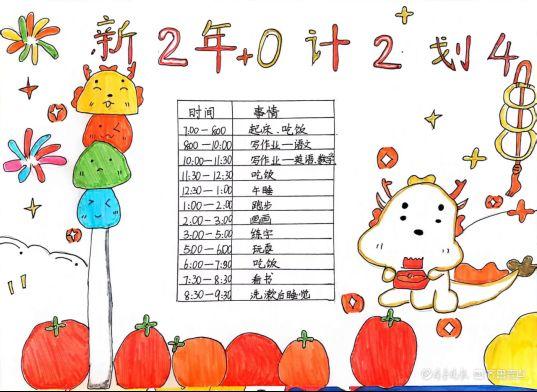 新2年+0计2划4
时间 事情
7:00—8:00 起床、吃饭
8:00—10:00 写作业—语文
10:00—11:30 写作业—英语、数学
11:30—12:30 吃饭
12:30—1:00 午睡
1:00—2:00 跑步
2:00—3:00 画画
3:00—5:00 练字
5:00—6:00 玩耍
6:00—7:30 吃饭
7:30—8:30 看书
8:30—9:30 洗漱后睡觉